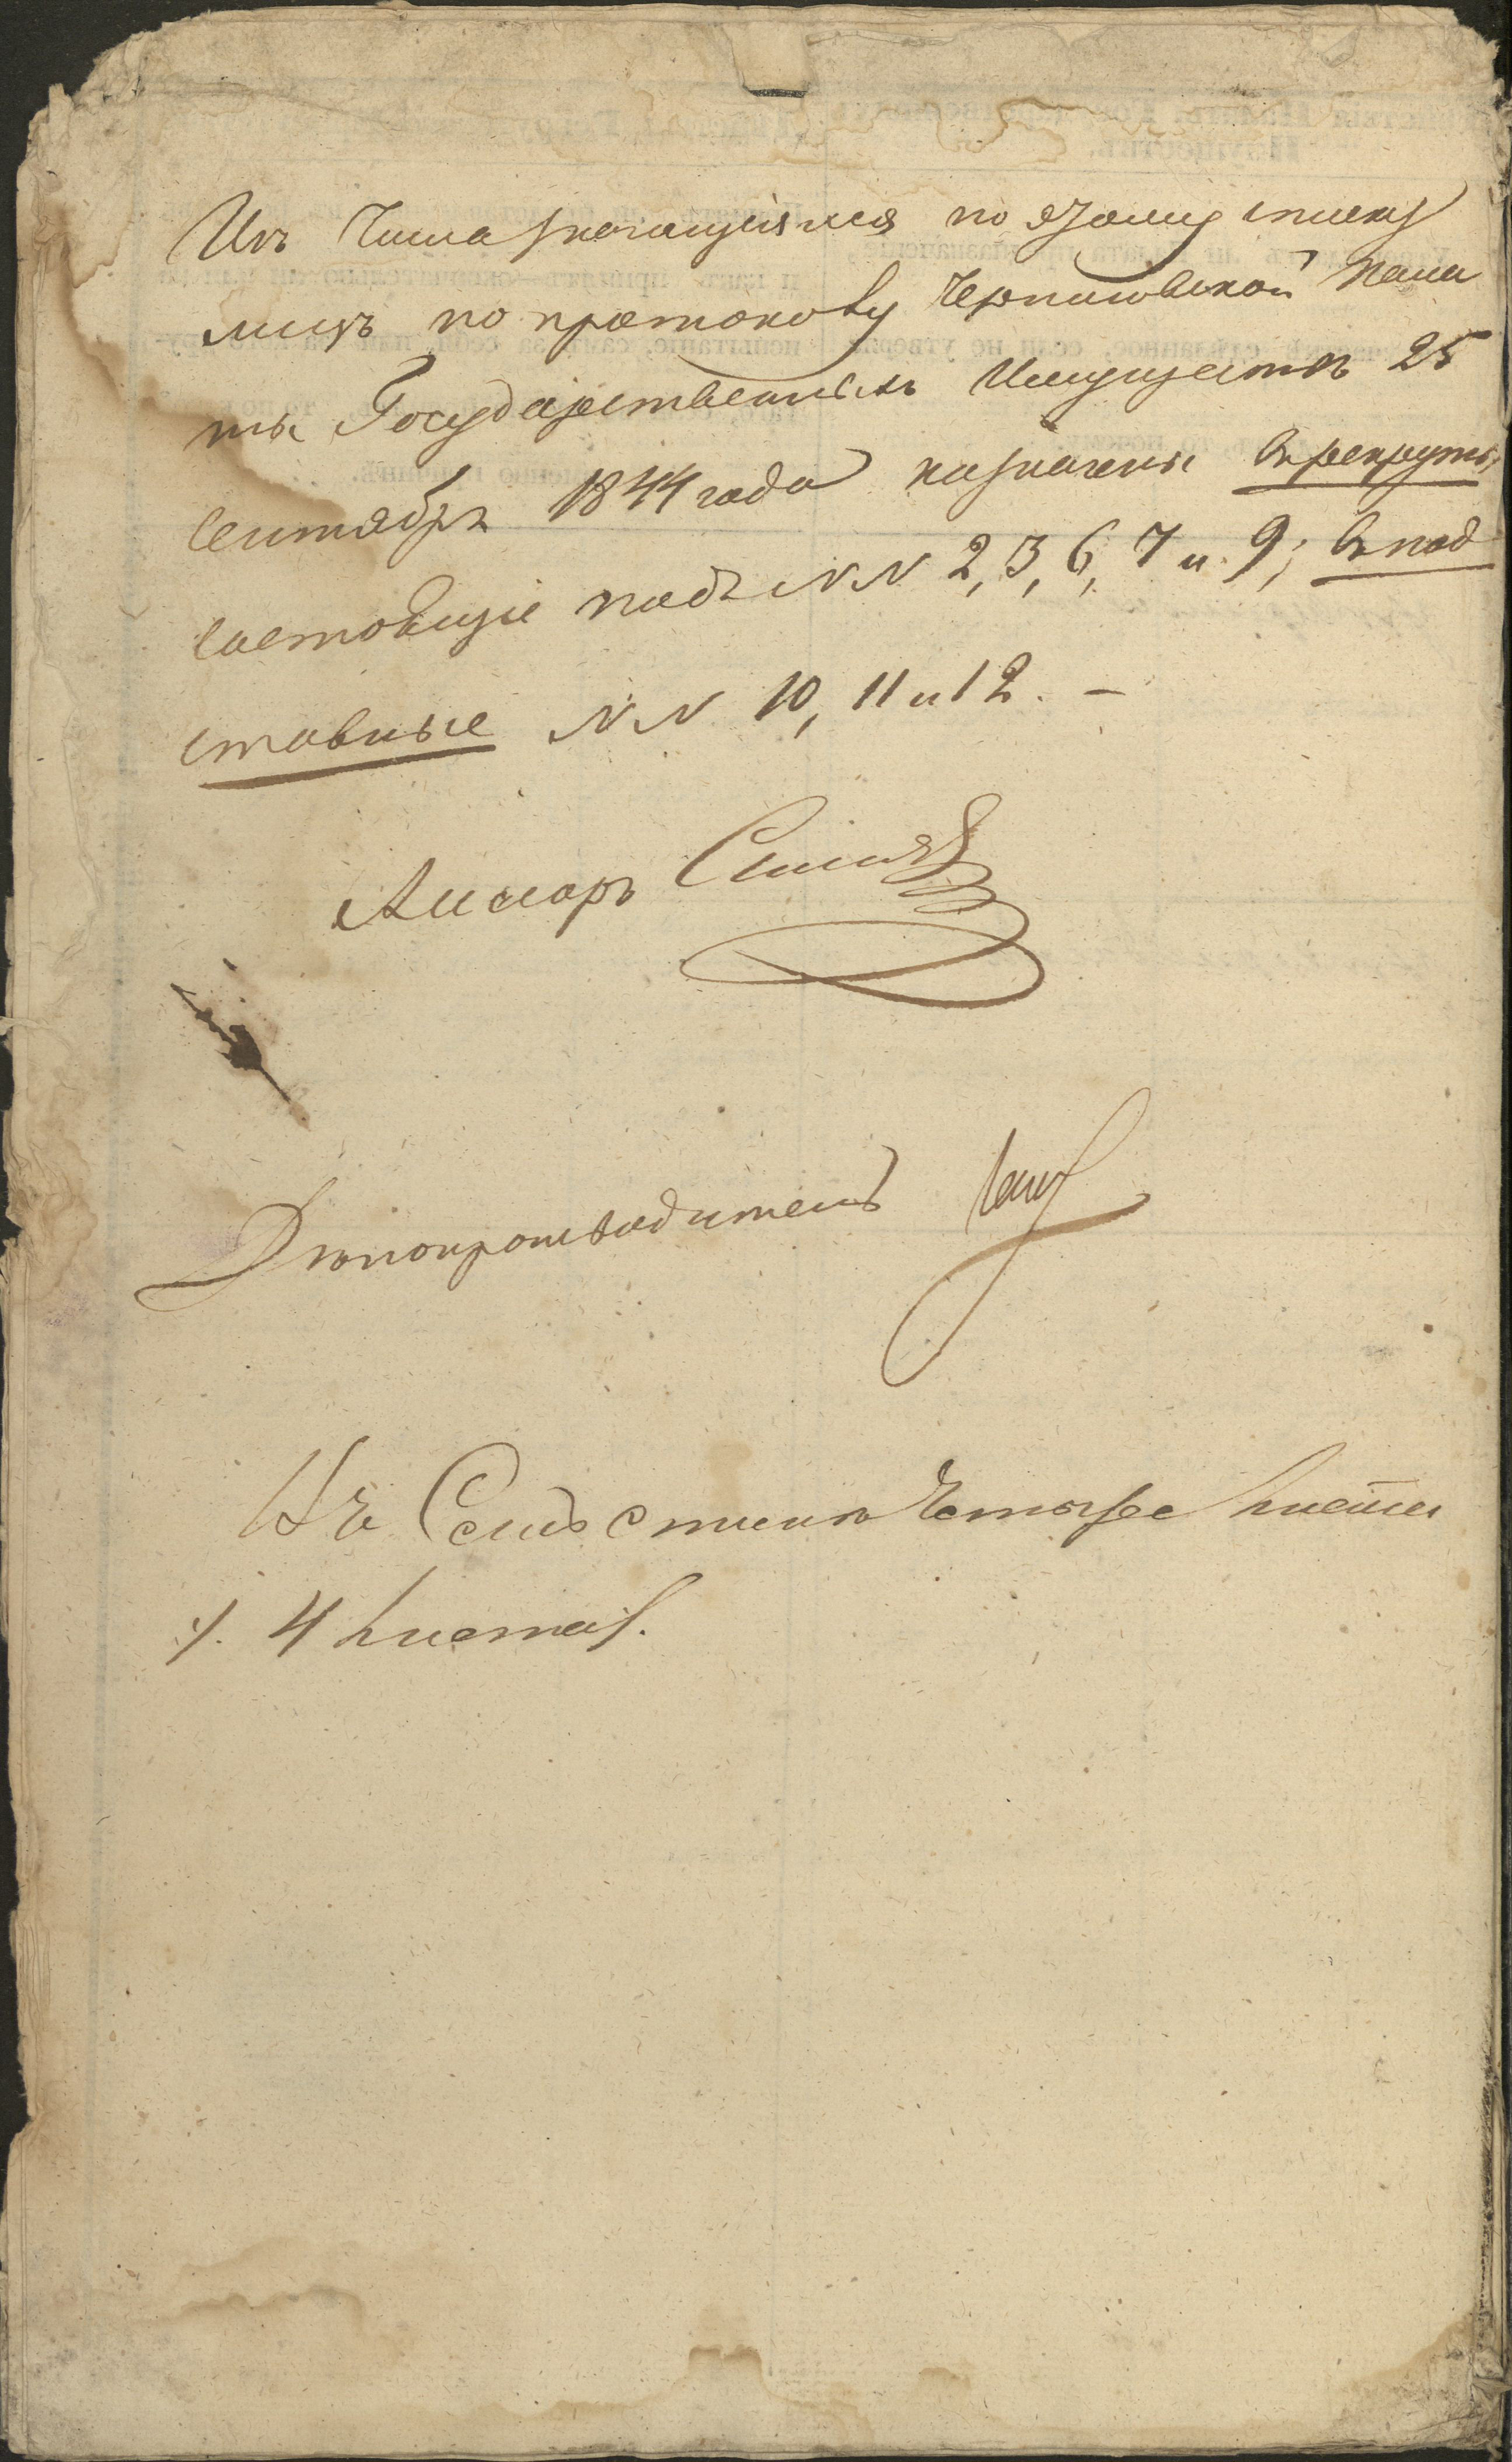 Изъ числа значащихся по этому списку
лицъ по протоколу Черниговской Пала
ты Государственныхъ Имуществъ 25
Сентября 1844 года назначены въ рекруты,
состоящіе подъ NN 2, 3, 6, 7 и 9; въ под
ставные NN 10, 11 и 12. –
Ассесоръ
Дѣлопроизводитель
Въ Семъ спискѣ Четыре листа
4 листа.